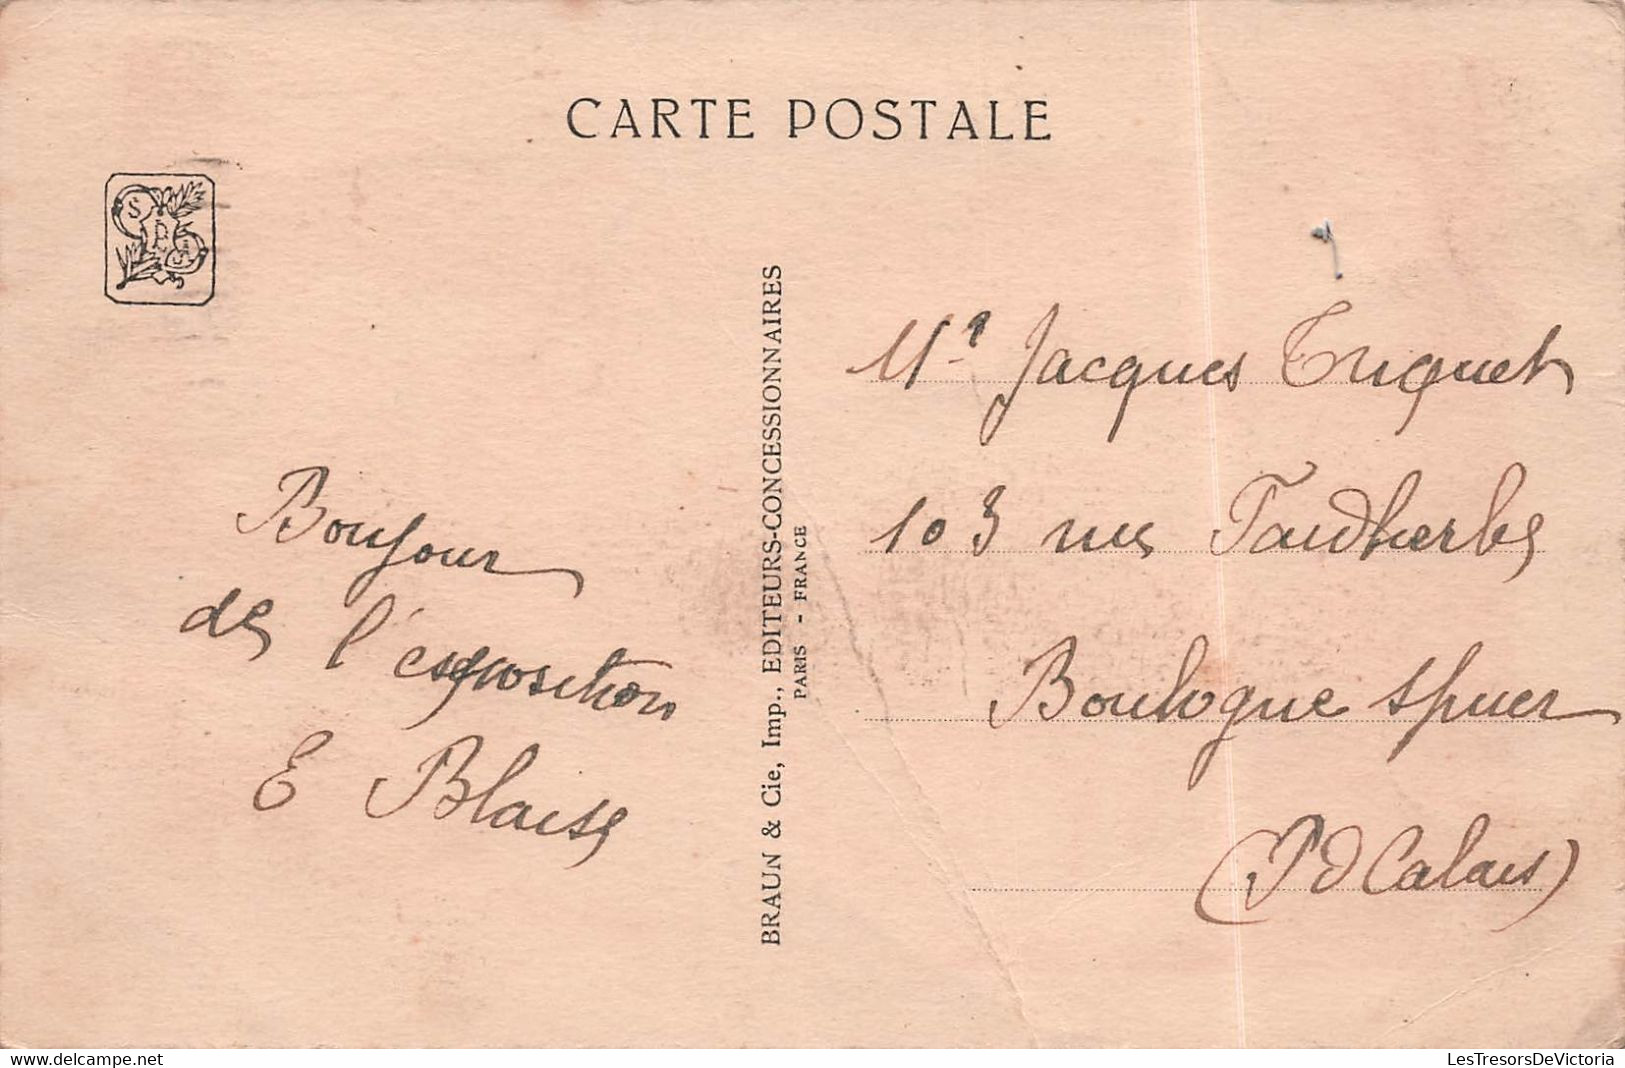 CARTE POSTALE
S
P
A
Bonjour
de l'exposition
E Blaise
BRAUN & Cie, Imp., EDITEURS-CONCESSIONNAIRES
PARIS - FRANCE
Mr Jacques Triquet
103 rue Faidherbe
Boulogne s/mer
(P d Calais)
delcampe.net
LesTresorsDeVictoria